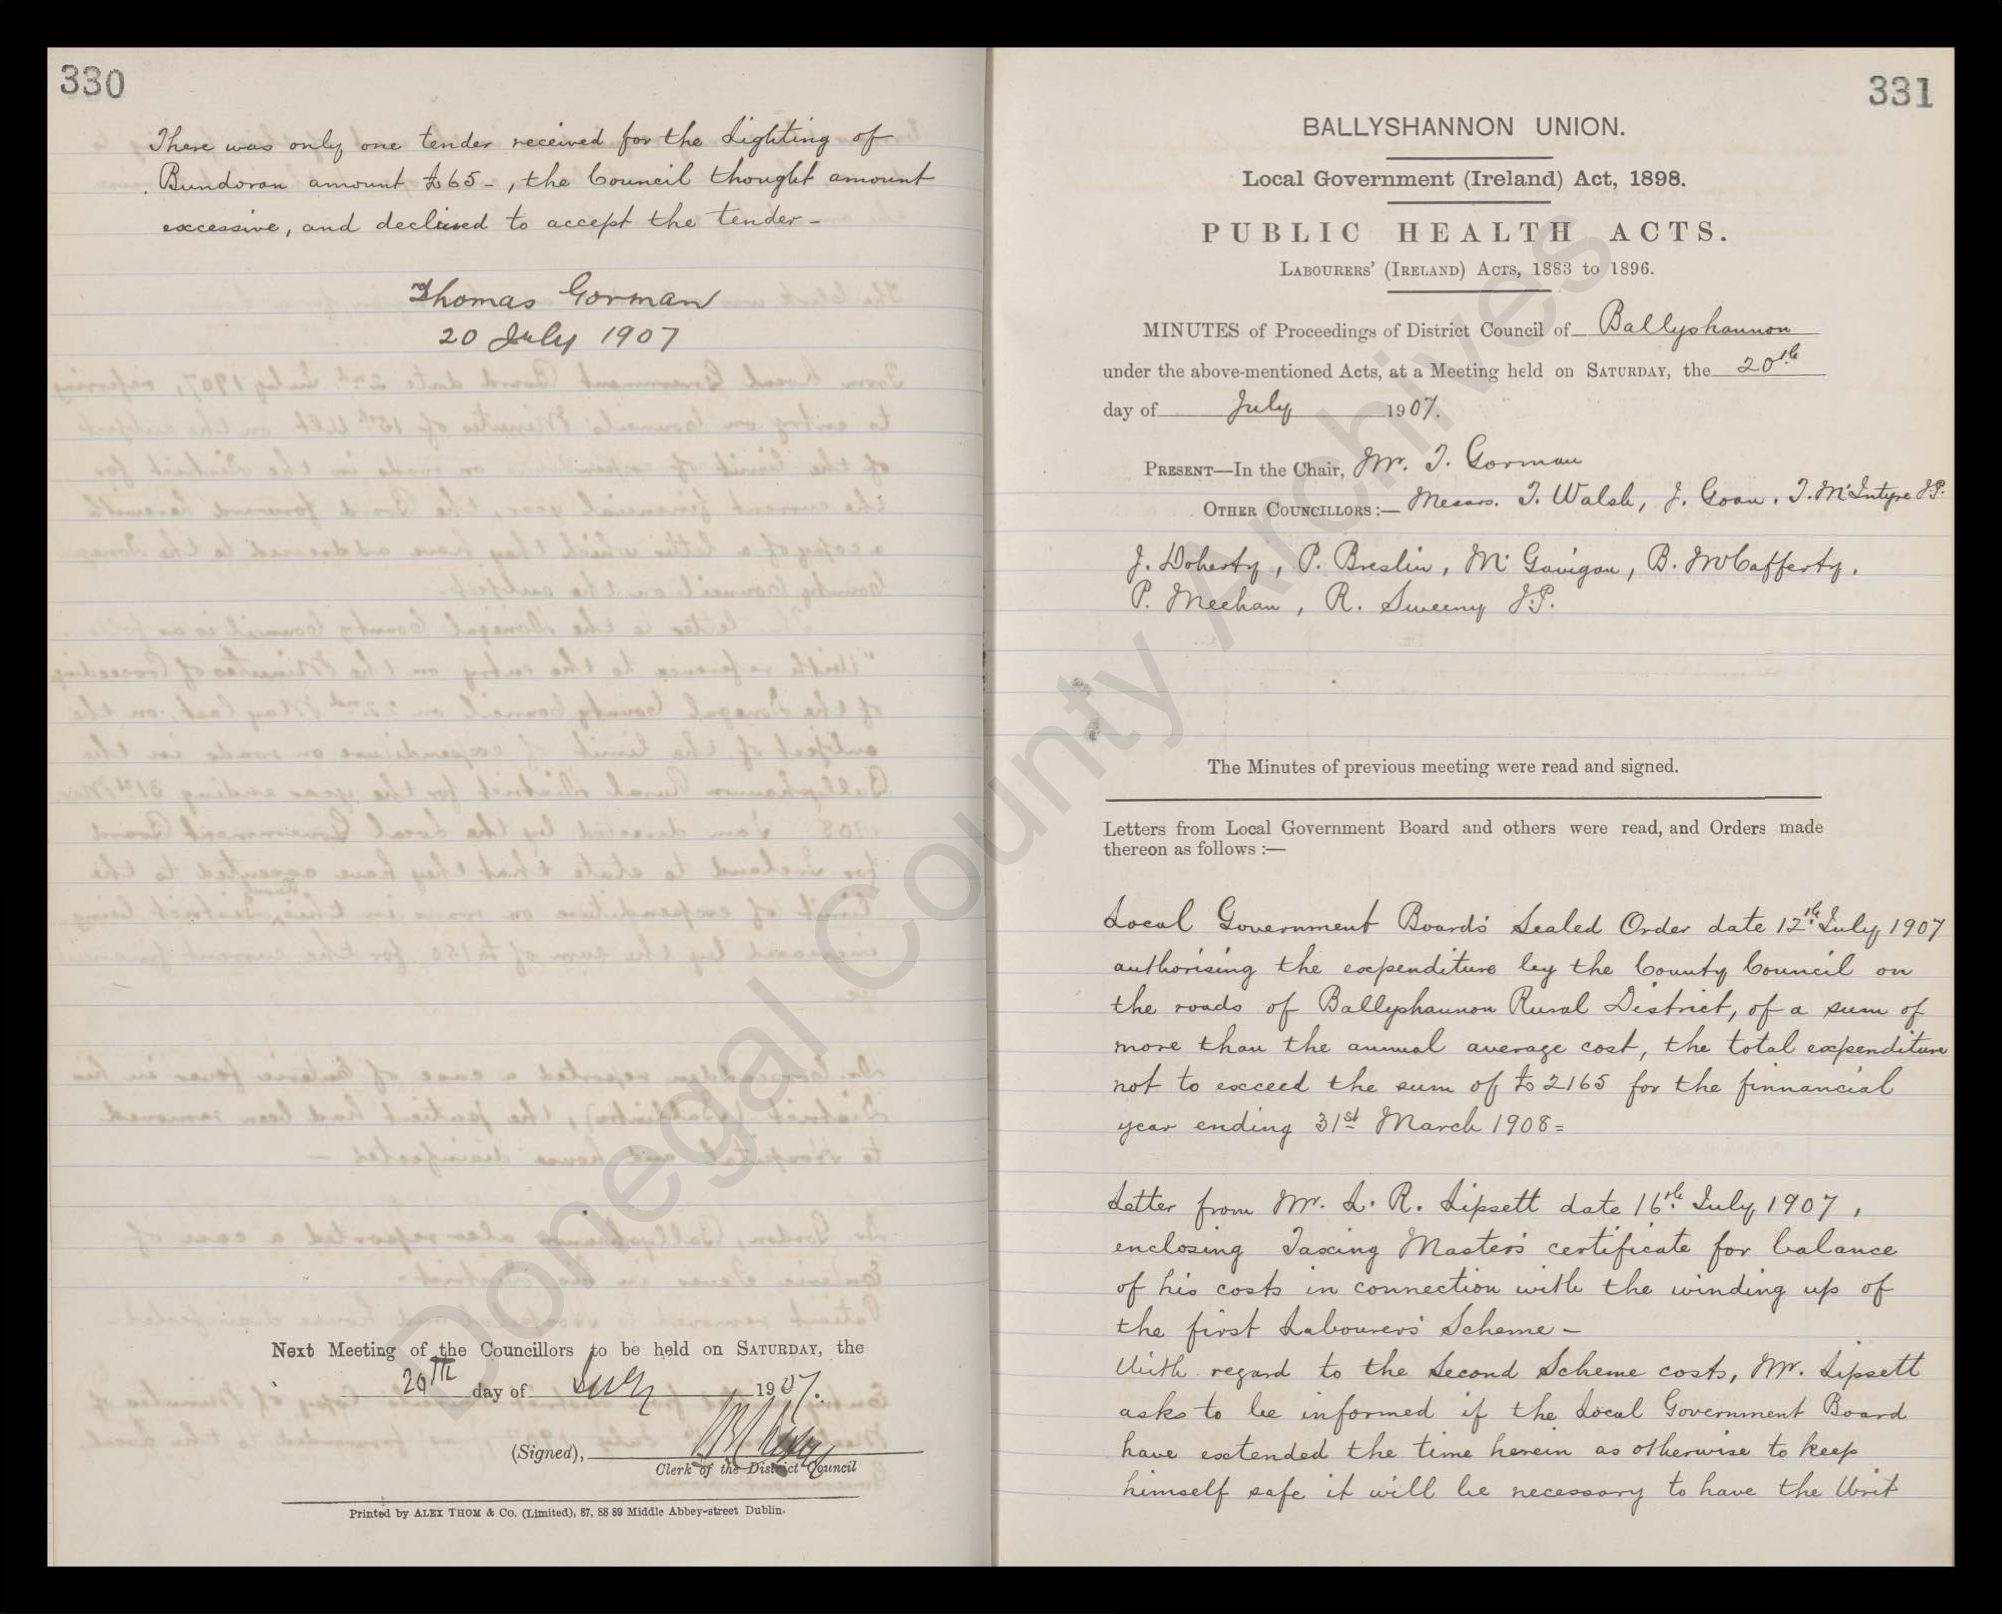 330
There was only one tender received for the Lighting of
Bundoran amount £65 -, the Council thought amount
excessive, and declined to accept the tender -
Thomas Gorman
20 July 1907
Next Meeting of the Councillors to be held on SATURDAY, the
20TH day of July 1907.
(Signed),
Clerk of the District Council
Printed by ALEX THOM & Co. (Limited), 87, 88 89 Middle Abbey-street Dublin.
331
BALLYSHANNON UNION.
Local Government (Ireland) Act, 1898.
PUBLIC HEALTH ACTS.
LABOURERS' (IRELAND) ACTS, 1883 to 1896.
MINUTES of Proceedings of District Council of Ballyshannon
under the above-mentioned Acts, at a Meeting held on SATURDAY, the 20th
day of July 1907.
PRESENT—In the Chair, Mr. T. Gorman
OTHER COUNCILLORS :— Messrs. T. Walsh, J. Goan, T. McIntyre J.P.
J. Doherty, P. Breslin, McGavigan, B. McCafferty,
P. Meehan, R. Sweeny J.P.
The Minutes of previous meeting were read and signed.
Letters from Local Government Board and others were read, and Orders made
thereon as follows :—
Local Government Board's Sealed Order date 12th July 1907
authorising the expenditure by the County Council on
the roads of Ballyshannon Rural District, of a sum of
more than the annual average cost, the total expenditure
not to exceed the sum of £2165 for the finnancial
year ending 31st March 1908=
Letter from Mr. L. R. Lipsett date 16th July 1907,
enclosing Taxing Master's certificate for balance
of his costs in connection with the winding up of
the first Labourers' Scheme -
With regard to the Second Scheme costs, Mr. Lipsett
asks to be informed if the Local Government Board
have extended the time herein as otherwise to keep
himself safe it will be necessary to have the Writ
Donegal County Archives